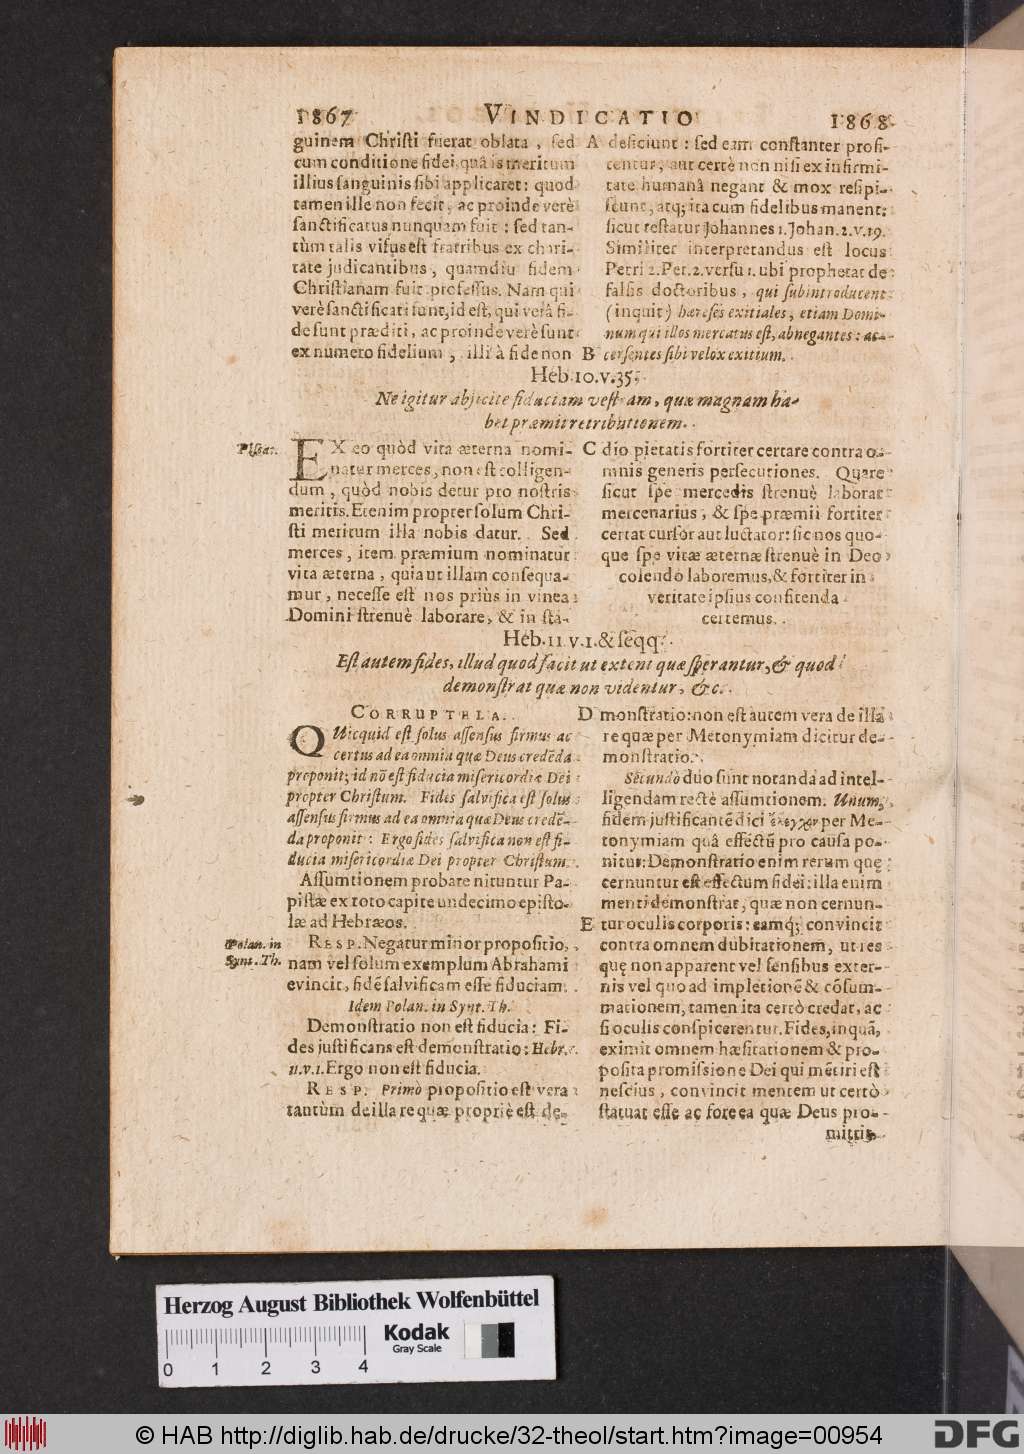 1867 VINDICATIO 1868
guinem Christi fuerat oblata, sed
cum conditione fidei, quâ is meritum
illius sanguinis sibi applicaret: quod
tamen ille non fecit, ac proinde verè
sanctificatus nunquam fuit: sed tan-
tùm talis visus est fratribus ex chari-
tate judicantibus, quamdiu fidem
Christianam fuit professus. Nam qui
verè sanctificati sunt, id est, qui verâ fi-
de sunt præditi, ac proinde verè sunt
ex numero fidelium, illi à fide non
A deficiunt: sed eam constanter profi-
tentur, aut certè non nisi ex infirmi-
tate humanâ negant & mox resipi-
scunt, atq; ita cum fidelibus manent:
sicut testatur Johannes 1. Johan. 2. v. 19.
Similiter interpretandus est locus
Petri 2. Pet. 2. versu 1. ubi prophetat de
falsis doctoribus, qui subintroducent
(inquit) hæreses exitiales, etiam Domi-
num qui illos mercatus est, abnegantes: ac-
B cersentes sibi velox exitium.
Heb. 10. v. 35.
Ne igitur abjicite fiduciam vestram, quæ magnam ha-
bet præmii retributionem.
Piscat.
EX eo quòd vita æterna nomi-
natur merces, non est colligen-
dum, quòd nobis detur pro nostris
meritis. Etenim propter solum Chri-
sti meritum illa nobis datur. Sed
merces, item præmium nominatur
vita æterna, quia ut illam consequa-
mur, necesse est nos priùs in vinea
Domini strenuè laborare, & in sta-
C dio pietatis fortiter certare contra o-
mnis generis persecutiones. Quare
sicut spe mercedis strenuè laborat
mercenarius, & spe præmii fortiter
certat cursor aut luctator: sic nos quo-
que spe vitæ æternæ strenuè in Deo
colendo laboremus, & fortiter in
veritate ipsius confitenda
certemus.
Heb. 11. v. 1. & seqq.
Est autem fides, illud quod facit ut extent quæ sperantur, & quod
demonstrat quæ non videntur, &c.
CORRUPTELA.
QUicquid est solus assensus firmus ac
certus ad ea omnia quæ Deus credēda
proponit; id nō est fiducia misericordiæ Dei
propter Christum. Fides salvifica est solus
assensus firmus ad ea omnia quæ Deus credē-
da proponit: Ergo fides salvifica non est fi-
ducia misericordiæ Dei propter Christum.
Assumtionem probare nituntur Pa-
pistæ ex toto capite undecimo episto-
læ ad Hebræos.
Polan. in
Synt. Th.
RESP. Negatur minor propositio,
nam vel solum exemplum Abrahami
evincit, fidē salvificam esse fiduciam.
Idem Polan. in Synt. Th.
Demonstratio non est fiducia: Fi-
des justificans est demonstratio: Hebr.
11. v. 1. Ergo non est fiducia.
RESP. Primò propositio est vera
tantùm de illa re quæ propriè est de-
D monstratio: non est autem vera de illa
re quæ per Metonymiam dicitur de-
monstratio.
Secundò duo sunt notanda ad intel-
ligendam rectè assumtionem. Unum,
fidem justificantē dici ἔλεγχον per Me-
tonymiam quâ effectū pro causa po-
nitur: Demonstratio enim rerum quę
cernuntur est effectum fidei: illa enim
menti demonstrat, quæ non cernun-
E tur oculis corporis: eamq; convincit
contra omnem dubitationem, ut res
quę non apparent vel sensibus exter-
nis vel quo ad impletionē & cōsum-
mationem, tamen ita certò credat, ac
si oculis conspicerentur. Fides, inquā,
eximit omnem hæsitationem & pro-
posita promissione Dei qui mētiri est
nescius, convincit mentem ut certò
statuat esse ac fore ea quæ Deus pro-
mittit
Herzog August Bibliothek Wolfenbüttel
Kodak
Gray Scale
0 1 2 3 4
© HAB http://diglib.hab.de/drucke/32-theol/start.htm?image=00954
DFG